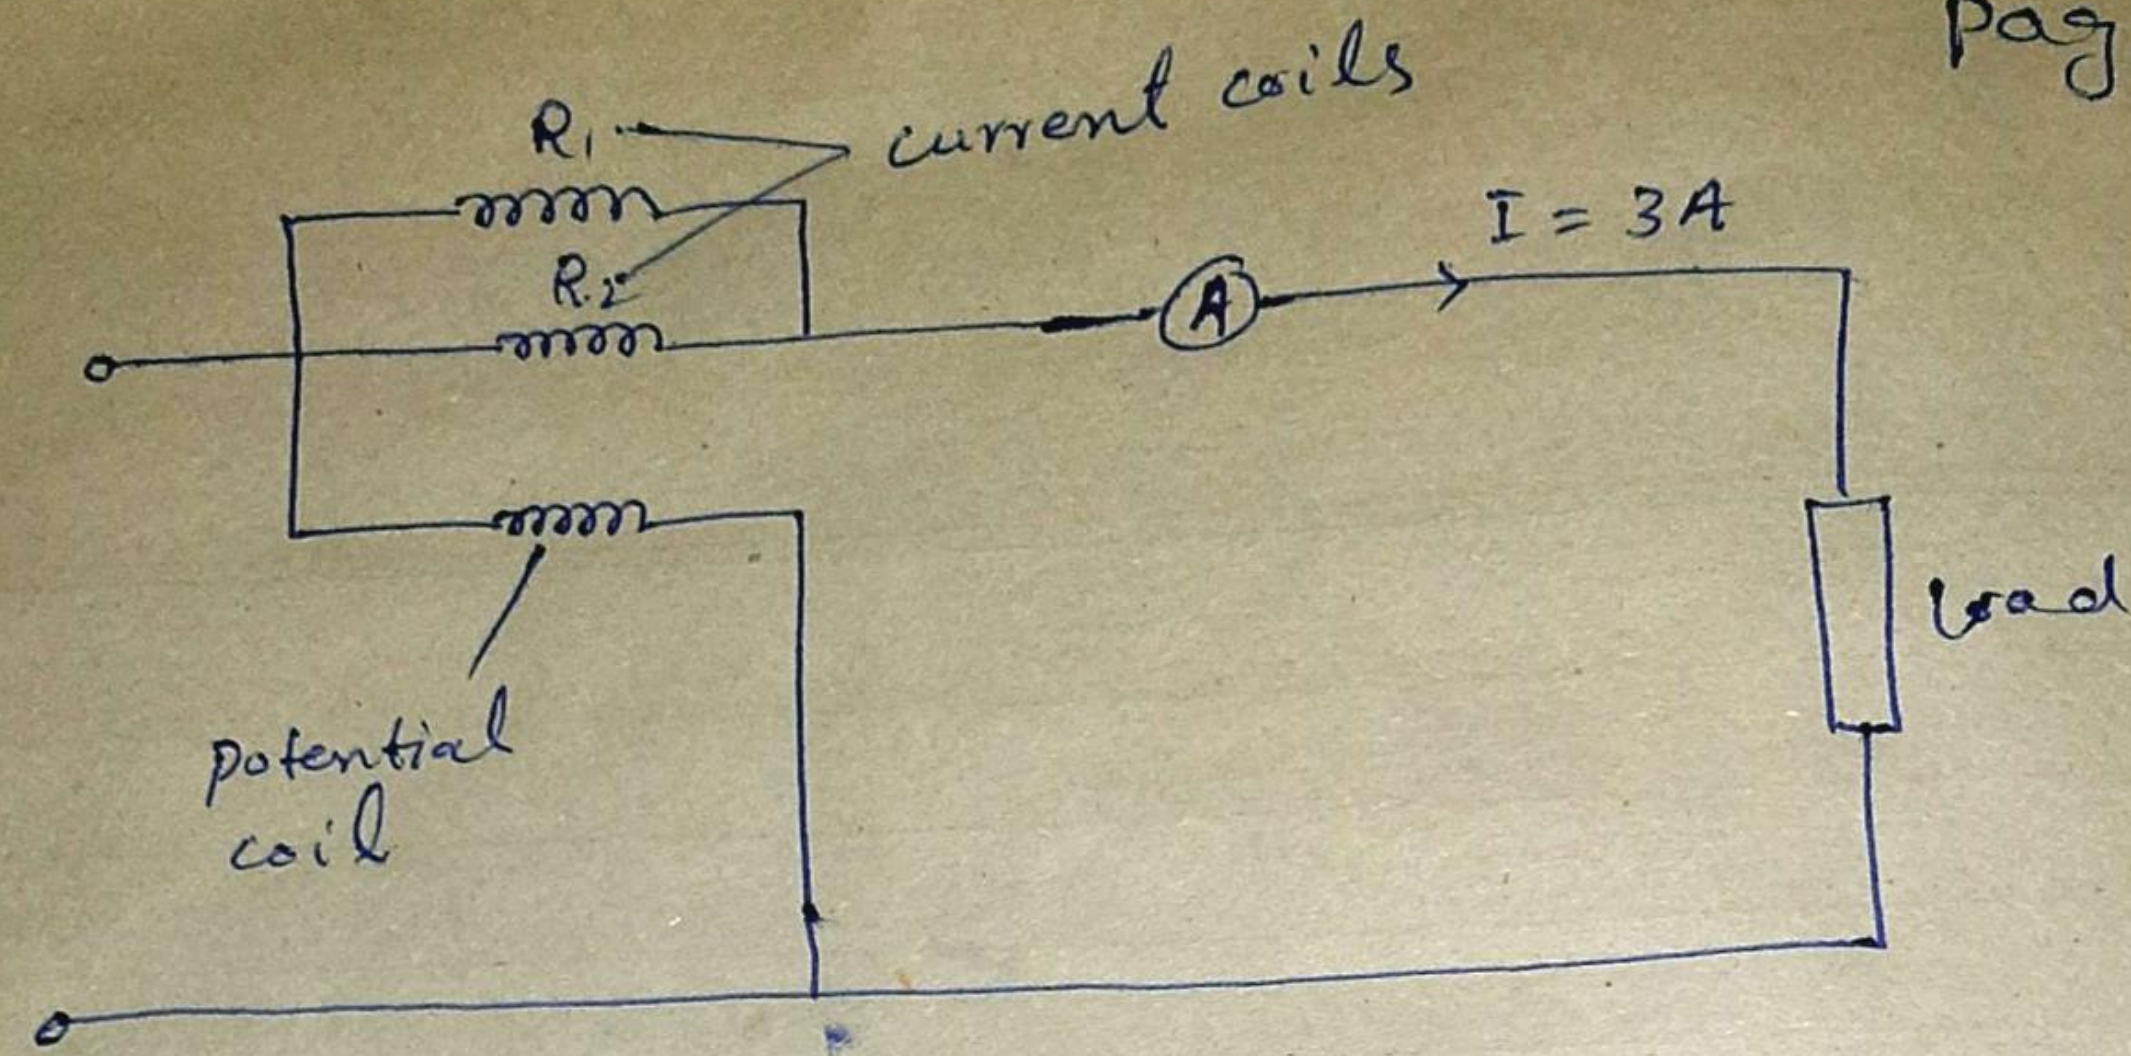 Pag
R1
current coils
R2
I = 3A
A
load
potential
coil